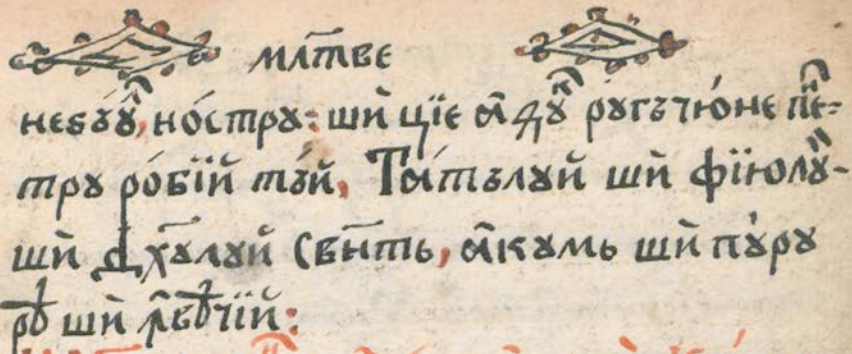 млт҃ве
небꙋ́ꙋл, но́стрꙋ: шѝ цїе а҆дꙋ́ч рꙋгъчю́не пе=
трꙋ ро́бїй тъ́й, Та́тълꙋй шѝ фїюлꙋ́й
шѝ Дх҃ꙋлꙋй Свн҃ть, а҆кꙋмь шѝ пꙋ́рꙋ
рѣ шѝ ꙟ вѣ́чїй: